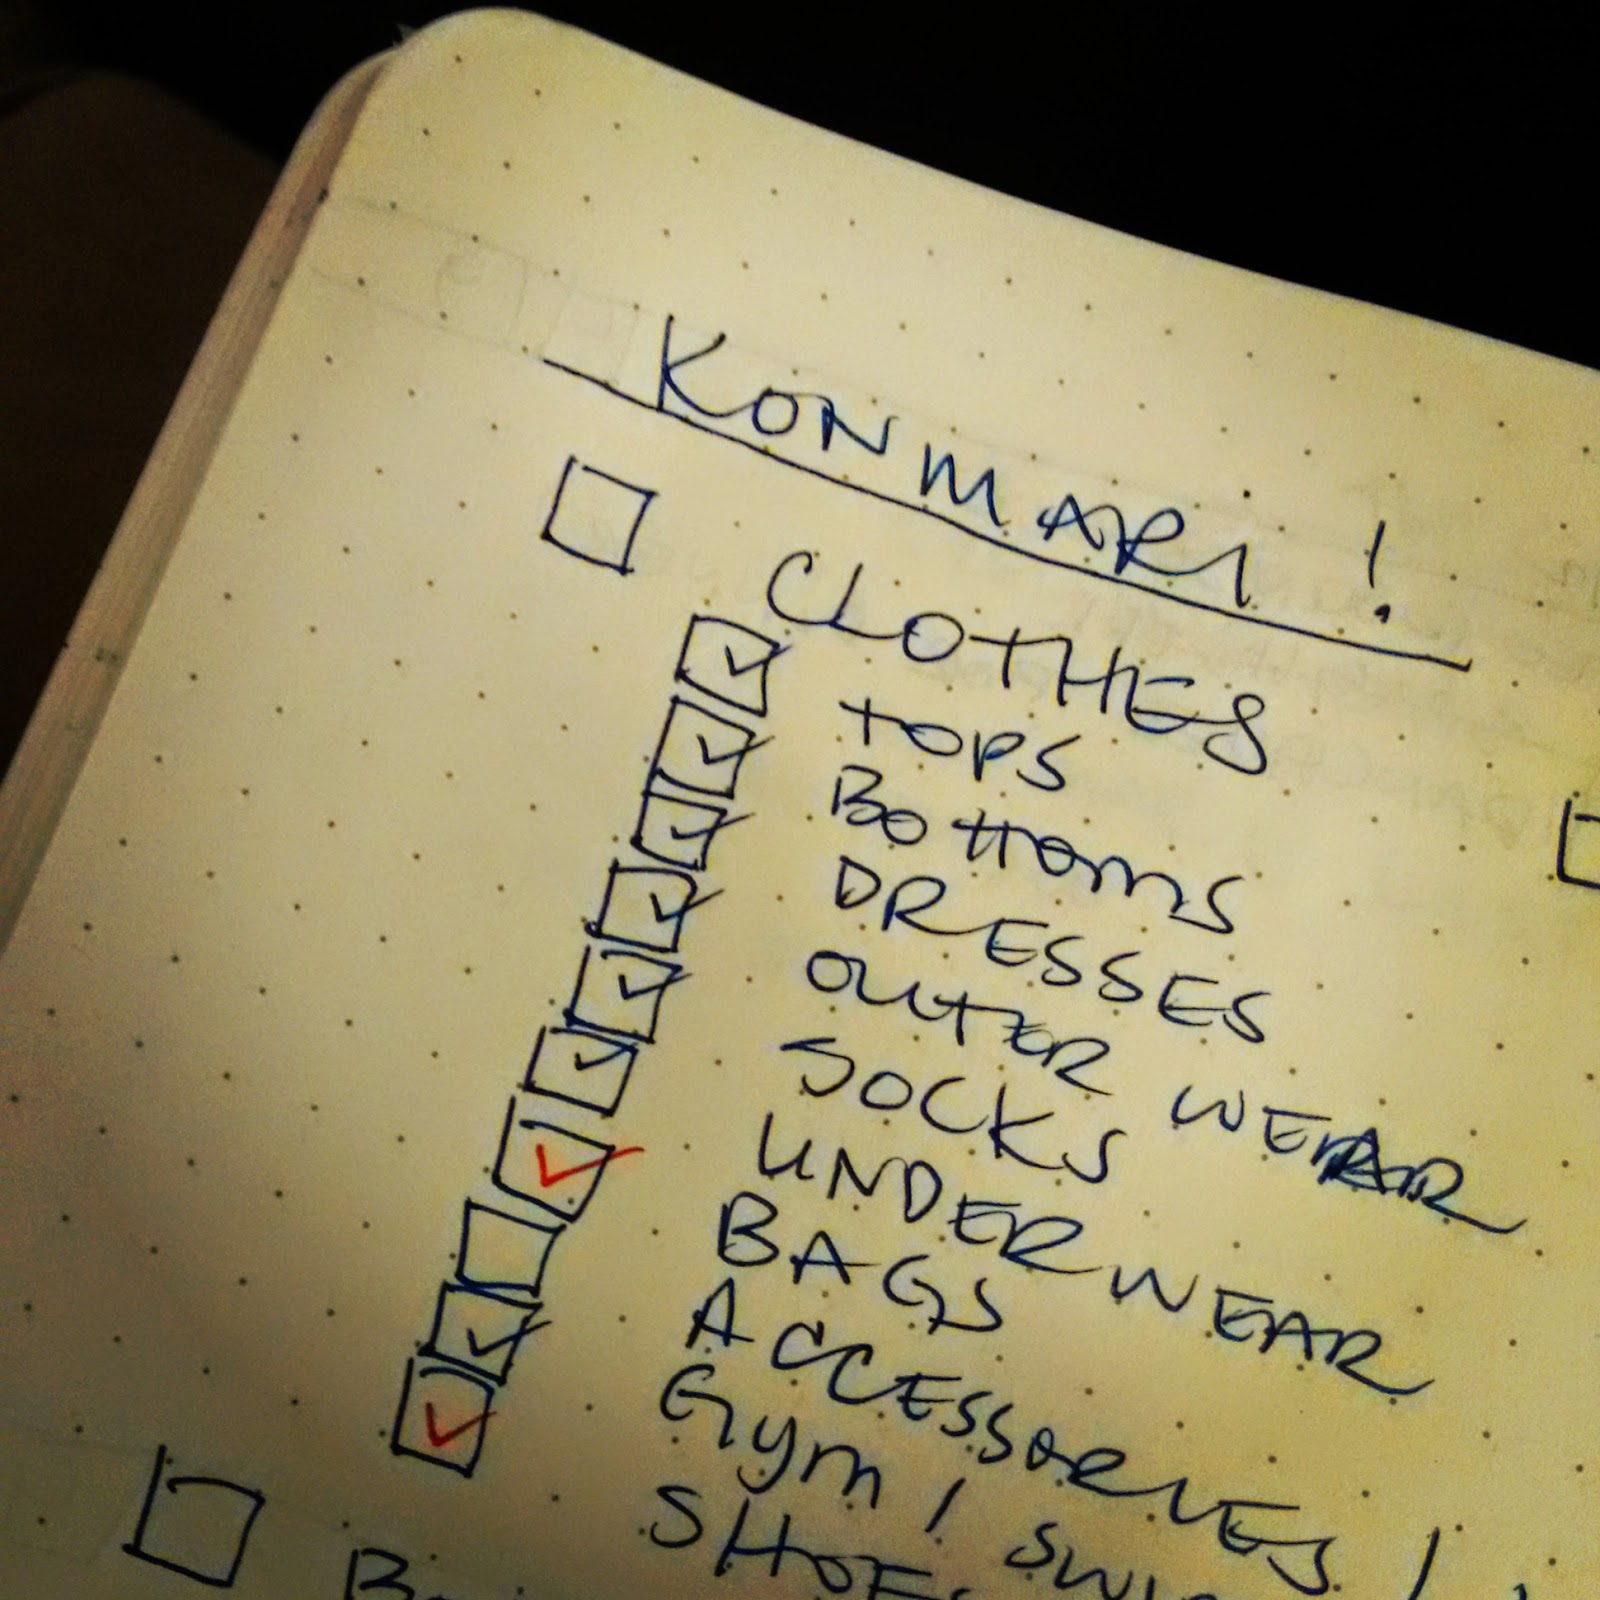 KONMARI!
CLOTHES
TOPS
BOTTOMS
DRESSES
OUTER WEAR
SOCKS
UNDERWEAR
BAGS
ACCESSORIES /
GYM /
SHOES